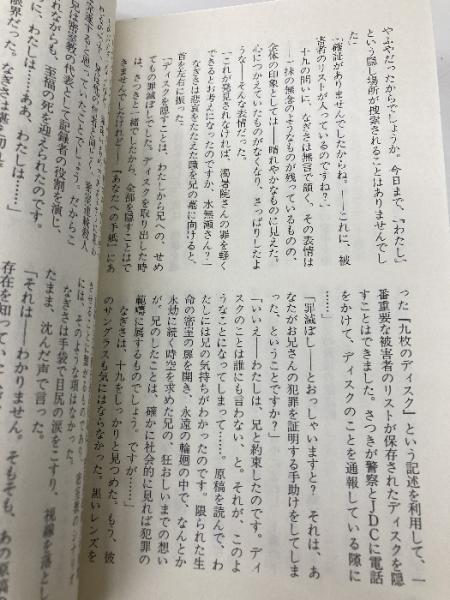 やふやだったからでしょうか。今日まで、『わたし』
という隠し場所が捜索されることはありませんでし
「確証がありませんでしたからね。――これに、被
害者のリストが入っているのですね?」
十九の問いに、なぎさは無言で頷く。その表情は
――一抹の無念のようなものが残っているものの、
全体の印象としては――晴れやかなものに見えた。
心につかえていたものがなくなり、さっぱりしたよ
うな――そんな表情だった。
「これが発見されなければ、濁暑院さんの罪を軽く
できるとお考えになったのですか、水無瀬さん?」
なぎさは悲哀をたたえた瞳を兄の墓に向けると、
首を左右に振った。
「ディスクを隠すことは、わたしから兄への、せめ
てもの罪滅ぼしでした。ディスクを取り出した時
は、さつきと一緒でしたから、全部を隠すことはで
きませんでしたけれど――『あなたへの手紙』にあ
った『九枚のディスク』という記述を利用して、一
番重要な被害者のリストが保存されたディスクを隠
すことはできました。さつきが警察とJDCに電話
をかけて、ディスクのことを通報している隙に
……」
「罪滅ぼし――とおっしゃいますと? それは、あ
なたがお兄さんの犯罪を証明する手助けをしてしま
った、ということですか?」
「いいえ――わたしは、兄と約束したのです。ディ
スクのことは誰にも言わない、と。それが、このよ
うなことになってしまって……。原稿を読んで、わ
たしには兄の気持ちがわかったのです。限られた生
命の密室の扉を開き、永遠の輪廻の中で、なんとか
永劫に続く時空を求めた兄の、狂おしいまでの想い
が。兄のしたことは、確かに社会的に見れば犯罪の
範疇に属するものでしょう。ですが……」
なぎさは、十九をしっかりと見つめた。もう、彼
のサングラスも気にはならなかった。黒いレンズを
兄は密室教の代表として記録者の役割を演じ、
れながらも、至福の死を迎えられたのです。
に、わたしは……ああ、わたしは……」
限界だった。なぎさは堪え切れ
には、そのような項はなかった。
なぎさは手袋で目尻の涙をこすり、視線を落とし
たまま、沈んだ声で言った。
「それは――わかりません。そもそも、あの原稿
存在を知っていた